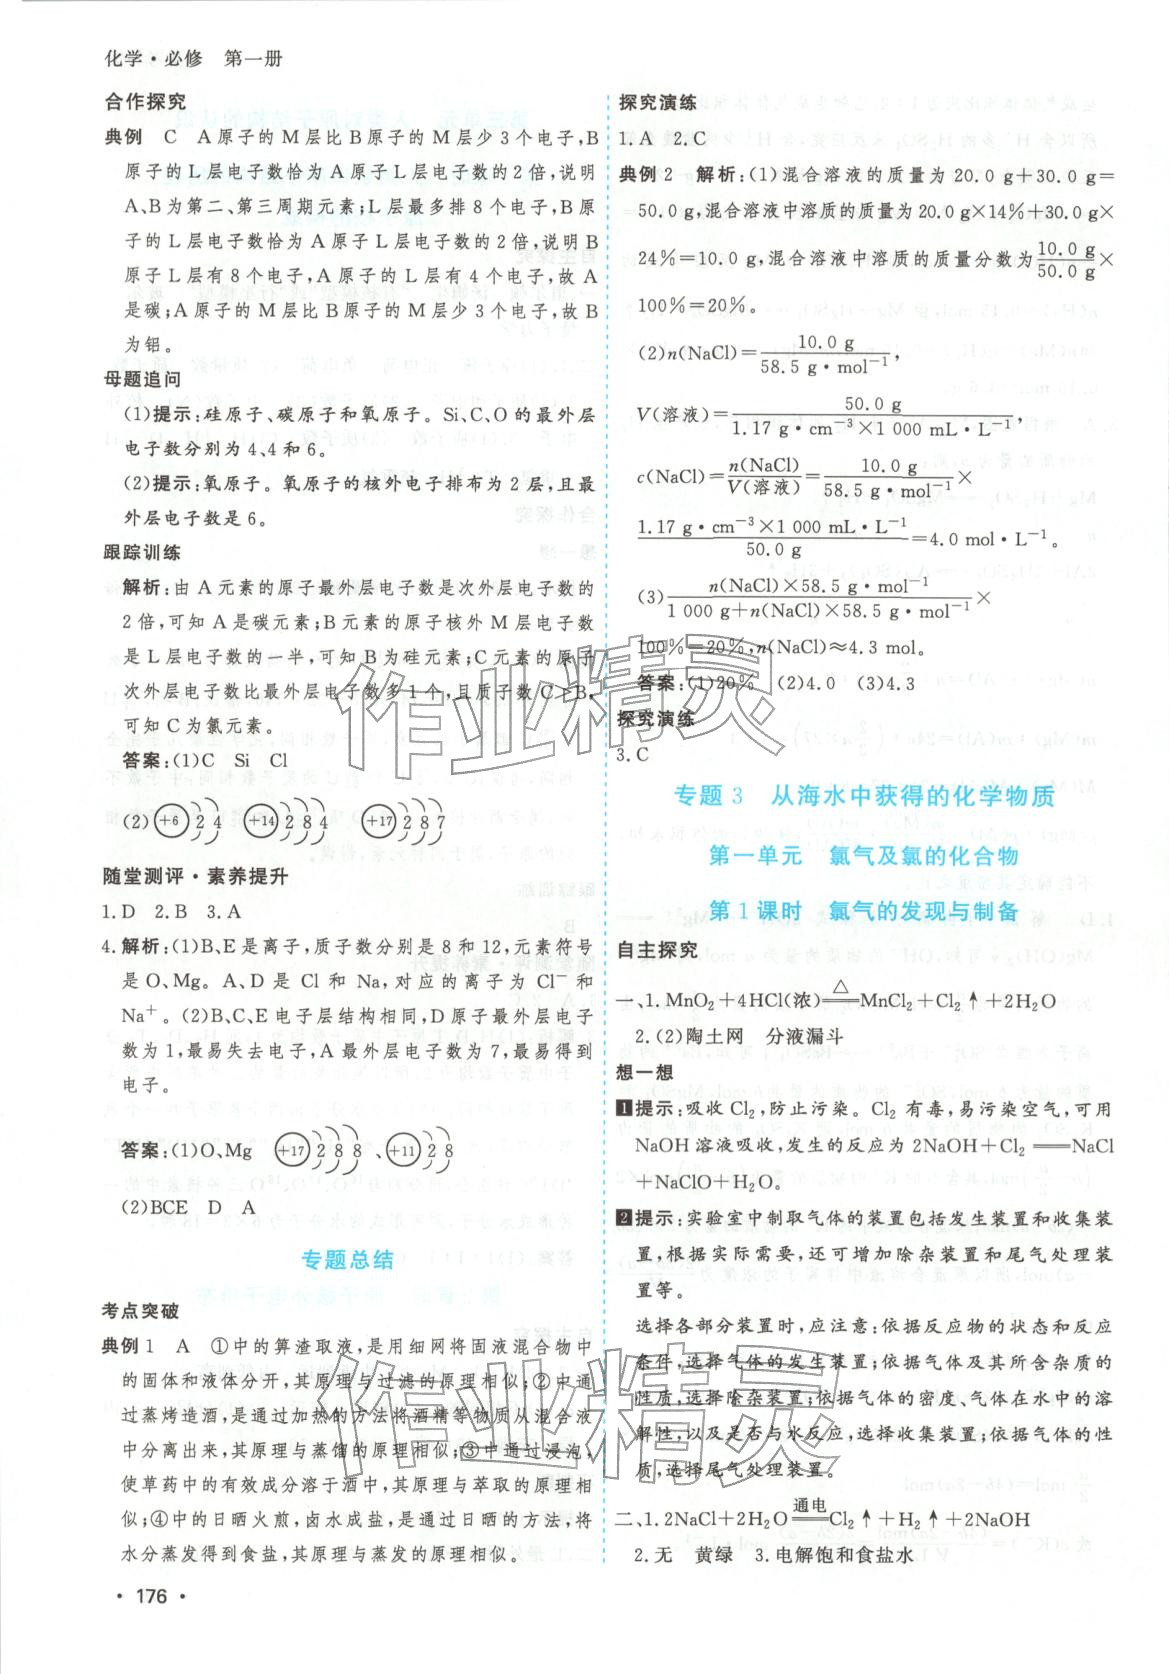 化学·必修　第一册
合作探究
典例　C　A原子的M层比B原子的M层少3个电子,B
原子的L层电子数恰为A原子L层电子数的2倍,说明
A、B为第二、第三周期元素;L层最多排8个电子,B原
子的L层电子数恰为A原子L层电子数的2倍,说明B
原子L层有8个电子,A原子的L层有4个电子,故A
是碳;A原子的M层比B原子的M层少3个电子,故B
为铝。
母题追问
(1)提示:硅原子、碳原子和氧原子。Si、C、O的最外层
电子数分别为4、4和6。
(2)提示:氧原子。氧原子的核外电子排布为2层,且最
外层电子数是6。
跟踪训练
解析:由A元素的原子最外层电子数是次外层电子数的
2倍,可知A是碳元素;B元素的原子核外M层电子数
是L层电子数的一半,可知B为硅元素;C元素的原子
次外层电子数比最外层电子数多1个,且质子数C>B,
可知C为氯元素。
答案:(1)C　Si　Cl
(2) +6 2 4　+14 2 8 4　+17 2 8 7
随堂测评·素养提升
1.D　2.B　3.A
4.解析:(1)B、E是离子,质子数分别是8和12,元素符号
是O、Mg。A、D是Cl和Na,对应的离子为Cl⁻和
Na⁺。(2)B、C、E电子层结构相同,D原子最外层电子
数为1,最易失去电子,A最外层电子数为7,最易得到
电子。
答案:(1)O、Mg　+17 2 8 8、+11 2 8
(2)BCE　D　A
专题总结
考点突破
典例1　A　①中的箅渣取液,是用细网将固液混合物中
的固体和液体分开,其原理与过滤的原理相似;②中通
过蒸烤造酒,是通过加热的方法将酒精等物质从混合液
中分离出来,其原理与蒸馏的原理相似;③中通过浸泡,
使草药中的有效成分溶于酒中,其原理与萃取的原理相
似;④中的日晒火煎,卤水成盐,是通过日晒的方法,将
水分蒸发得到食盐,其原理与蒸发的原理相似。
· 176 ·
探究演练
1.A　2.C
典例2　解析:(1)混合溶液的质量为20.0 g+30.0 g=
50.0 g,混合溶液中溶质的质量为20.0 g×14%+30.0 g×
24%=10.0 g,混合溶液中溶质的质量分数为10.0 g/50.0 g×
100%=20%。
(2)n(NaCl)=10.0 g/58.5 g·mol⁻¹,
V(溶液)=50.0 g/1.17 g·cm⁻³×1 000 mL·L⁻¹,
c(NaCl)=n(NaCl)/V(溶液)=10.0 g/58.5 g·mol⁻¹×
1.17 g·cm⁻³×1 000 mL·L⁻¹/50.0 g=4.0 mol·L⁻¹。
(3)n(NaCl)×58.5 g·mol⁻¹/1 000 g+n(NaCl)×58.5 g·mol⁻¹×
100%=20%,n(NaCl)≈4.3 mol。
答案:(1)20%　(2)4.0　(3)4.3
探究演练
3.C
专题3　从海水中获得的化学物质
第一单元　氯气及氯的化合物
第1课时　氯气的发现与制备
自主探究
一、1.MnO₂+4HCl(浓)=△=MnCl₂+Cl₂↑+2H₂O
2.(2)陶土网　分液漏斗
想一想
1 提示:吸收Cl₂,防止污染。Cl₂有毒,易污染空气,可用
NaOH溶液吸收,发生的反应为2NaOH+Cl₂══NaCl
+NaClO+H₂O。
2 提示:实验室中制取气体的装置包括发生装置和收集装
置,根据实际需要,还可增加除杂装置和尾气处理装
置等。
选择各部分装置时,应注意:依据反应物的状态和反应
条件,选择气体的发生装置;依据气体及其所含杂质的
性质,选择除杂装置;依据气体的密度、气体在水中的溶
解性,以及是否与水反应,选择收集装置;依据气体的性
质,选择尾气处理装置。
二、1.2NaCl+2H₂O=通电=Cl₂↑+H₂↑+2NaOH
2.无　黄绿　3.电解饱和食盐水
作业精灵
作业精灵